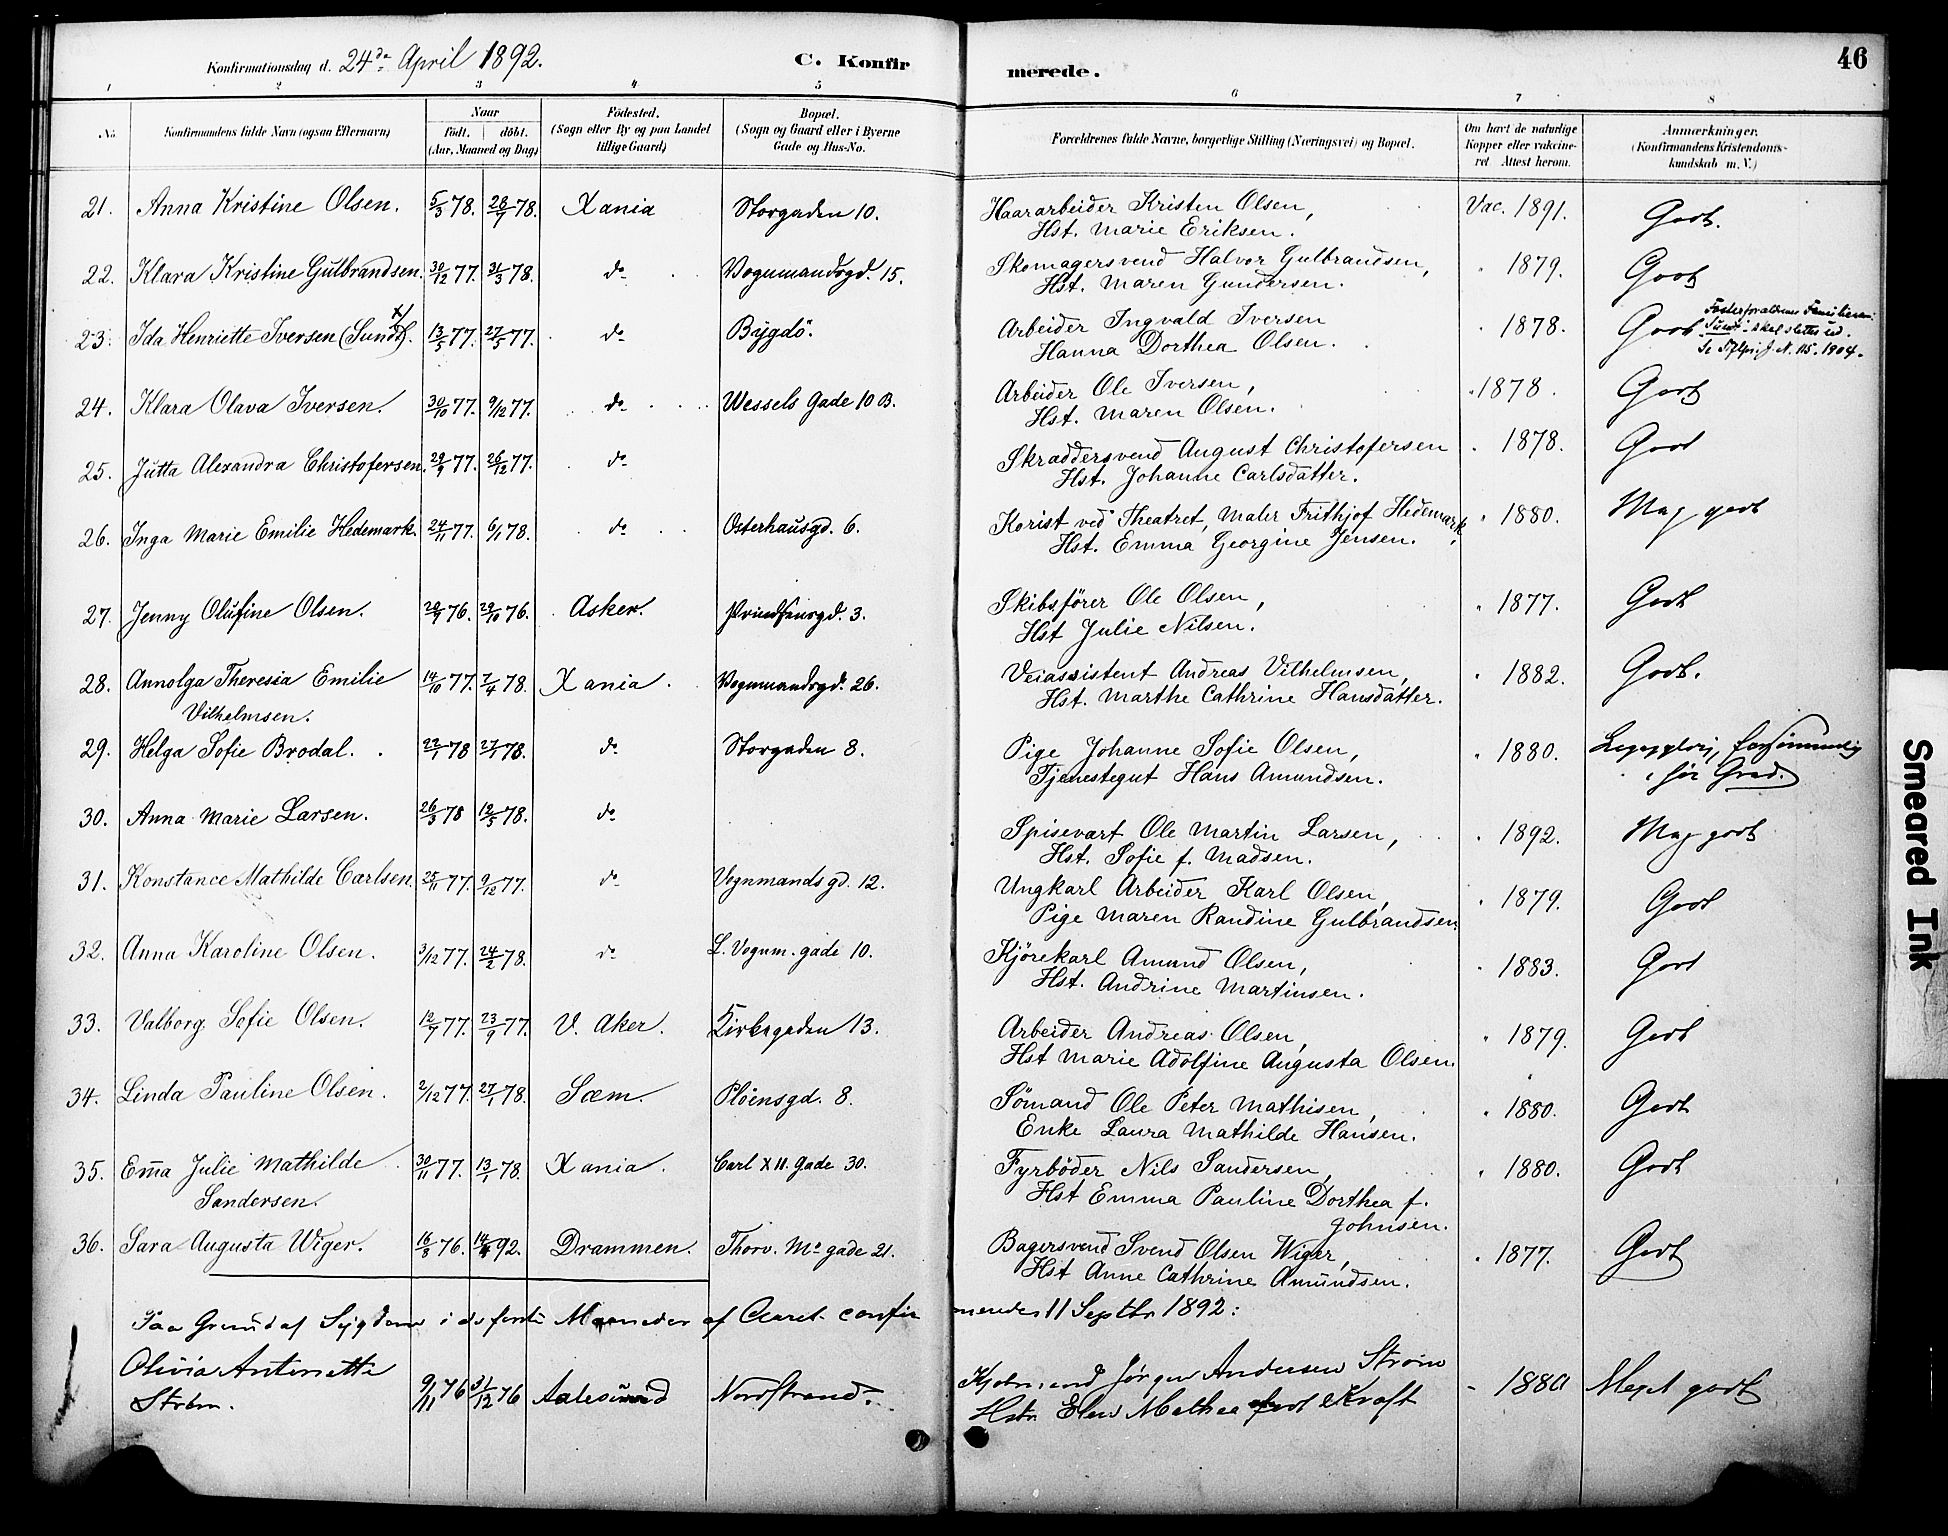 Konfirmationsdag d. 24de April 1892. C. Konfirmerede. 46
1 2 3 4 5 6 7 8
No. Konfirmandens fulde Navn (ogsaa Efternavn) Naar født. døbt. (Aar, Maaned og Dag) Fødested. (Sogn eller By og paa Landet tillige Gaard) Bopæl. (Sogn og Gaard eller i Byerne Gade og Hus-No. Forældrenes fulde Navne, borgerlige Stilling (Næringsvei) og Bopæl. Om havt de naturlige Kopper eller vaccineret Attest herom. Anmærkninger. (Konfirmandens Kristendomskundskab m. V.)
21. Anna Kristine Olsen. 5/3 78. 28/7 78. Xania Storgaden 10. Haararbeider Kristen Olsen, Vac. 1891. Godt.
Hst. Marie Eriksen.
22. Klara Kristine Gulbrandsen. 30/12 77. 31/3 78. do Vognmandsgd. 15. Skomagersvend Halvor Gulbrandsen, " 1879. Godt
Hst. Maren Gundersen.
23. Ida Henriette Iversen (Sundt). x/ 13/5 77. 27/5 77. do Bygdö. Arbeider Ingvald Iversen " 1878. Godt
Hanna Dorthea Olsen. Sundt skal slettes ud.
Se N. 115. 1904.
24. Klara Olava Iversen. 30/10 77. 9/12 77. do Wessels Gade 10 B. Arbeider Ole Iversen, " 1878. Godt
Hst. Maren Olsen.
25. Jutta Alexandra Christofersen. 29/9 77. 26/12 77. do Skraddersvend August Christofersen " 1878. Godt
Hst. Johanne Carlsdatter.
26. Inga Marie Emilie Hedemark. 24/11 77. 6/1 78. do Osterhausgd. 6. Korist ved Theatret, Maler Frithjof Hedemark, " 1880. Meg godt
Hst. Emma Georgine Jensen.
27. Jenny Olufine Olsen. 20/9 76. 29/10 76. Asker. Prindsensgd. 3. Skibsfører Ole Olsen, " 1877. Godt
Hst Julie Nilsen.
28. Annolga Theresia Emilie 14/10 77. 7/4 78. Xania. Vognmandsgd. 26. Veiassistent Andreas Vilhelmsen, " 1882. Godt.
Vilhelmsen. Hst. Marthe Cathrine Hansdatter.
29. Helga Sofie Brodal. 22/1 78 27/1 78. do Storgaden 8. Pige Johanne Sofie Olsen, " 1880.
Tjenestegut Hans Amundsen. Grad.
30. Anna Marie Larsen. 26/3 78 12/5 78. do Spisevært Ole Martin Larsen, " 1892. Meg godt
Hst. Sofie f. Madsen.
31. Konstance Mathilde Carlsen 25/11 77. 9/12 77. do Vognmandsgd. 12. Ungkarl Arbeider Karl Olsen, " 1879. Godt
Pige Maren Randine Gulbrandsen.
32. Anna Karoline Olsen. 3/12 77. 24/2 78. do L. Vognm. gade 10. Kjørekarl Amund Olsen, " 1883. Godt
Hst. Andrine Martinsen.
33. Valborg Sofie Olsen. 12/7 77. 23/9 77. V. Aker. Kirkegaden 13. Arbeider Andreas Olsen, " 1879. Godt
Hst Marie Adolfine Augusta Olsen.
34. Linda Pauline Olsen. 2/12 77. 27/1 78. Sæm. Pløensgd. 8. Sømand Ole Peter Mathisen, " 1880. Godt
Enke Laura Mathilde Hansen.
35. Em̄a Julie Mathilde 30/11 77. 13/1 78. Xania. Carl XII. Gade 30. Fyrbøder Nils Sandersen, " 1880. Godt
Sandersen. Hst Emma Pauline Dorthea f.
Johnsen.
36. Sara Augusta Wiger. 16/3 76. 92. Drammen. Thorv. Ms gade 21. Bagersvend Svend Olsen Wiger, " 1877. Godt
Hst Anne Cathrine Amundsen.
Paa Grund af Sygdom i de første Maaneder af Aaret confirmeredes 11 Septbr 1892:
Olivia Antonette 9/11 76 31/12 76 Aalesund Nordstrand. Kjøbmand Jørgen Andersen Strøm " 1880 Meget godt
Strøm. Hstr. Elen Mathea født Kraft
Smeared Ink